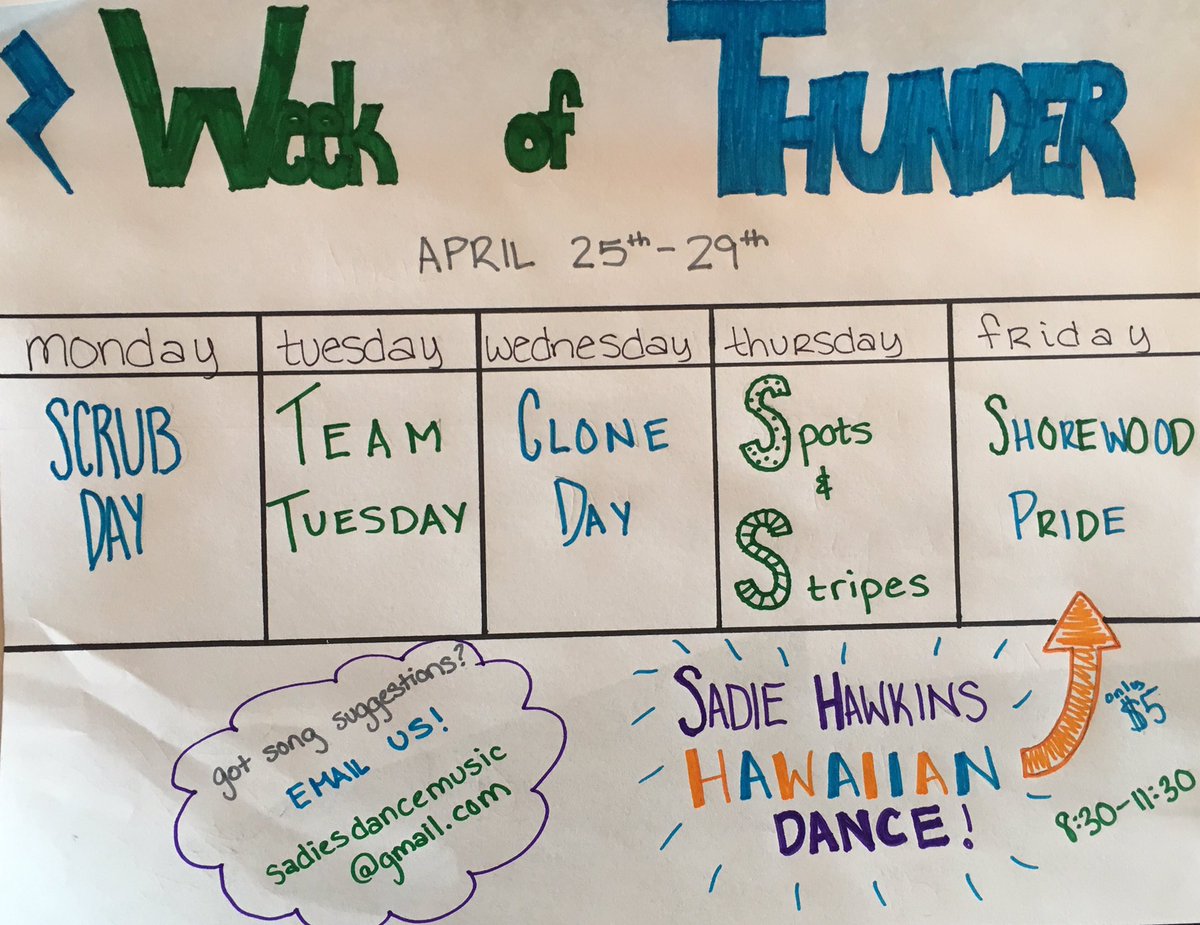 Week of Thunder
APRIL 25th-29th
monday tuesday wednesday thursday friday
SCRUB
DAY
TEAM
TUESDAY
CLONE
DAY
Spots
&
Stripes
SHOREWOOD
PRIDE
got song suggestions?
EMAIL US!
sadiesdancemusic
@gmail.com
SADIE HAWKINS
HAWAIIAN
DANCE!
only
$5
8:30-11:30